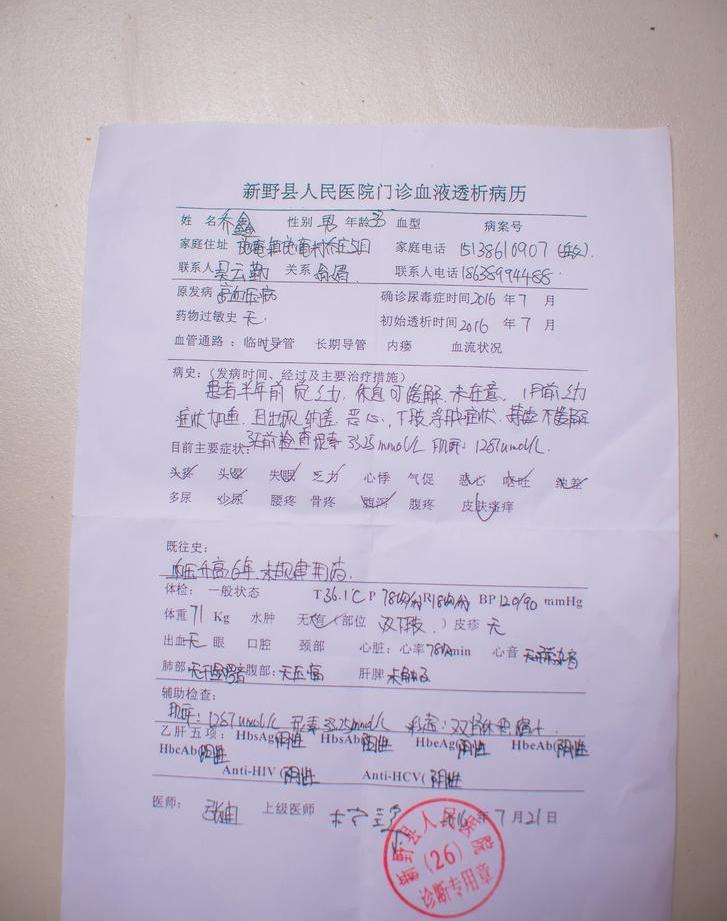 新野县人民医院门诊血液透析病历
姓 名 乔鑫 性别 男 年龄 血型 病案号
家庭住址 家庭电话 15138610907
联系人 吴云勤 关系 联系人电话 18638994488
原发病 高血压病 确诊尿毒症时间 2016 年 7 月
药物过敏史 无 初始透析时间 2016 年 7 月
血管通路：临时导管 长期导管 内瘘 血流状况
病史：（发病时间、经过及主要治疗措施）
患者半年前觉乏力，休息可缓解，未在意。1月前乏力
症状加重，且出现纳差、恶心，下肢浮肿症状，不缓解
目前主要症状： 检查尿素 33.25mmol/L 肌酐：1287umol/L.
头疼 头晕 失眠 乏力 心悸 气促 恶心 呕吐 纳差
多尿 少尿 腰疼 骨疼 腹泻 腹疼 皮肤瘙痒
既往史：
血压升高6年，未规律用药.
体检：一般状态 T 36.1℃ P 78次/分 R 18次/分 BP 120/90 mmHg
体重 71 Kg 水肿 无 （部位 双下肢 ）皮疹 无
出血 无 眼 口腔 颈部 心脏：心率 78次/min 心音
肺部 腹部：无压痛 肝脾 未触及
辅助检查：
肌酐：1287umol/L 尿素 33.25mmol/L 彩超：双肾体积缩小.
乙肝五项：HbsAg(阴性 HbsAb(阴性 HbeAg(阴性 HbeAb(阴性
HbcAb(阴性
Anti-HIV (阴性 Anti-HCV( 阴性
医师： 上级医师 2016 年 7 月 21 日
新野县人民医院
(26)
诊断专用章